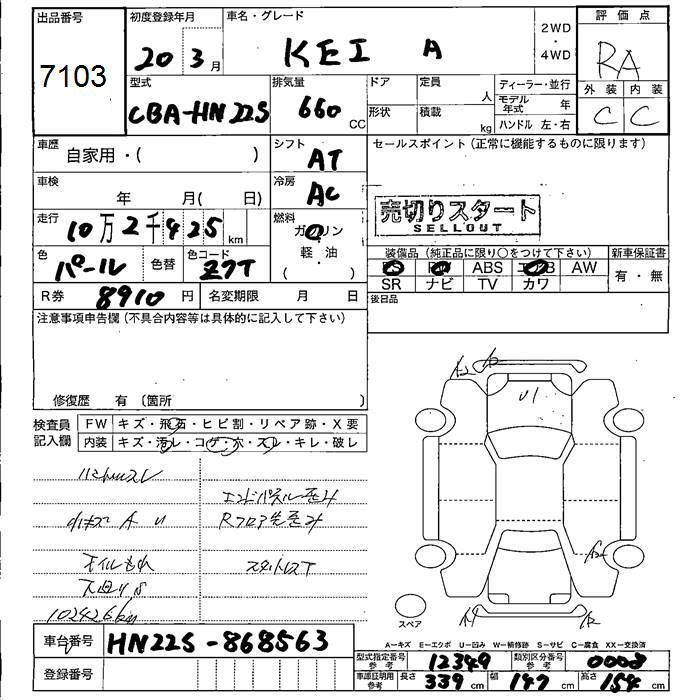 出品番号
7103
初度登録年月
20年3月
車名・グレード
KEI A
2WD
・
4WD
評価点
RA
外装 内装
C C
型式
CBA-HN22S
排気量
660 CC
ドア
形状
定員 人
積載 kg
ディーラー・並行
モデル年式 年
ハンドル 左・右
車歴
自家用・( )
シフト
AT
セールスポイント(正常に機能するものに限ります)
車検
年 月( 日)
冷房
AC
売切りスタート
SELLOUT
走行
10万2千425km
燃料
ガソリン
軽・油
( )
色
パール
色替
色コード
Z7T
装備品(純正品に限り○をつけて下さい)
PS PW ABS エアB AW
SR ナビ TV カワ
新車保証書
有・無
R券 8910円
名変期限 月 日
後日品
注意事項申告欄(不具合内容等は具体的に記入して下さい)
修復歴 有(箇所 )
検査員
記入欄
FW キズ・飛石・ヒビ割・リペア跡・X要
内装 キズ・汚レ・コゲ・穴・スレ・キレ・破レ
ハンドルスレ
エンドパネル歪み
小キズ A U
Rフロア先歪み
オイルもれ
スタッドレスT
102426km
U1
スペア
A=キズ E=エクボ U=凹み W=補修跡 S=サビ C=腐食 XX=交換済
車台番号 HN22S-868563
登録番号
型式指定番号 参考 12349
類別区分番号 参考 0008
車庫証明用 参考 長さ 339cm 幅 147cm 高さ 154cm